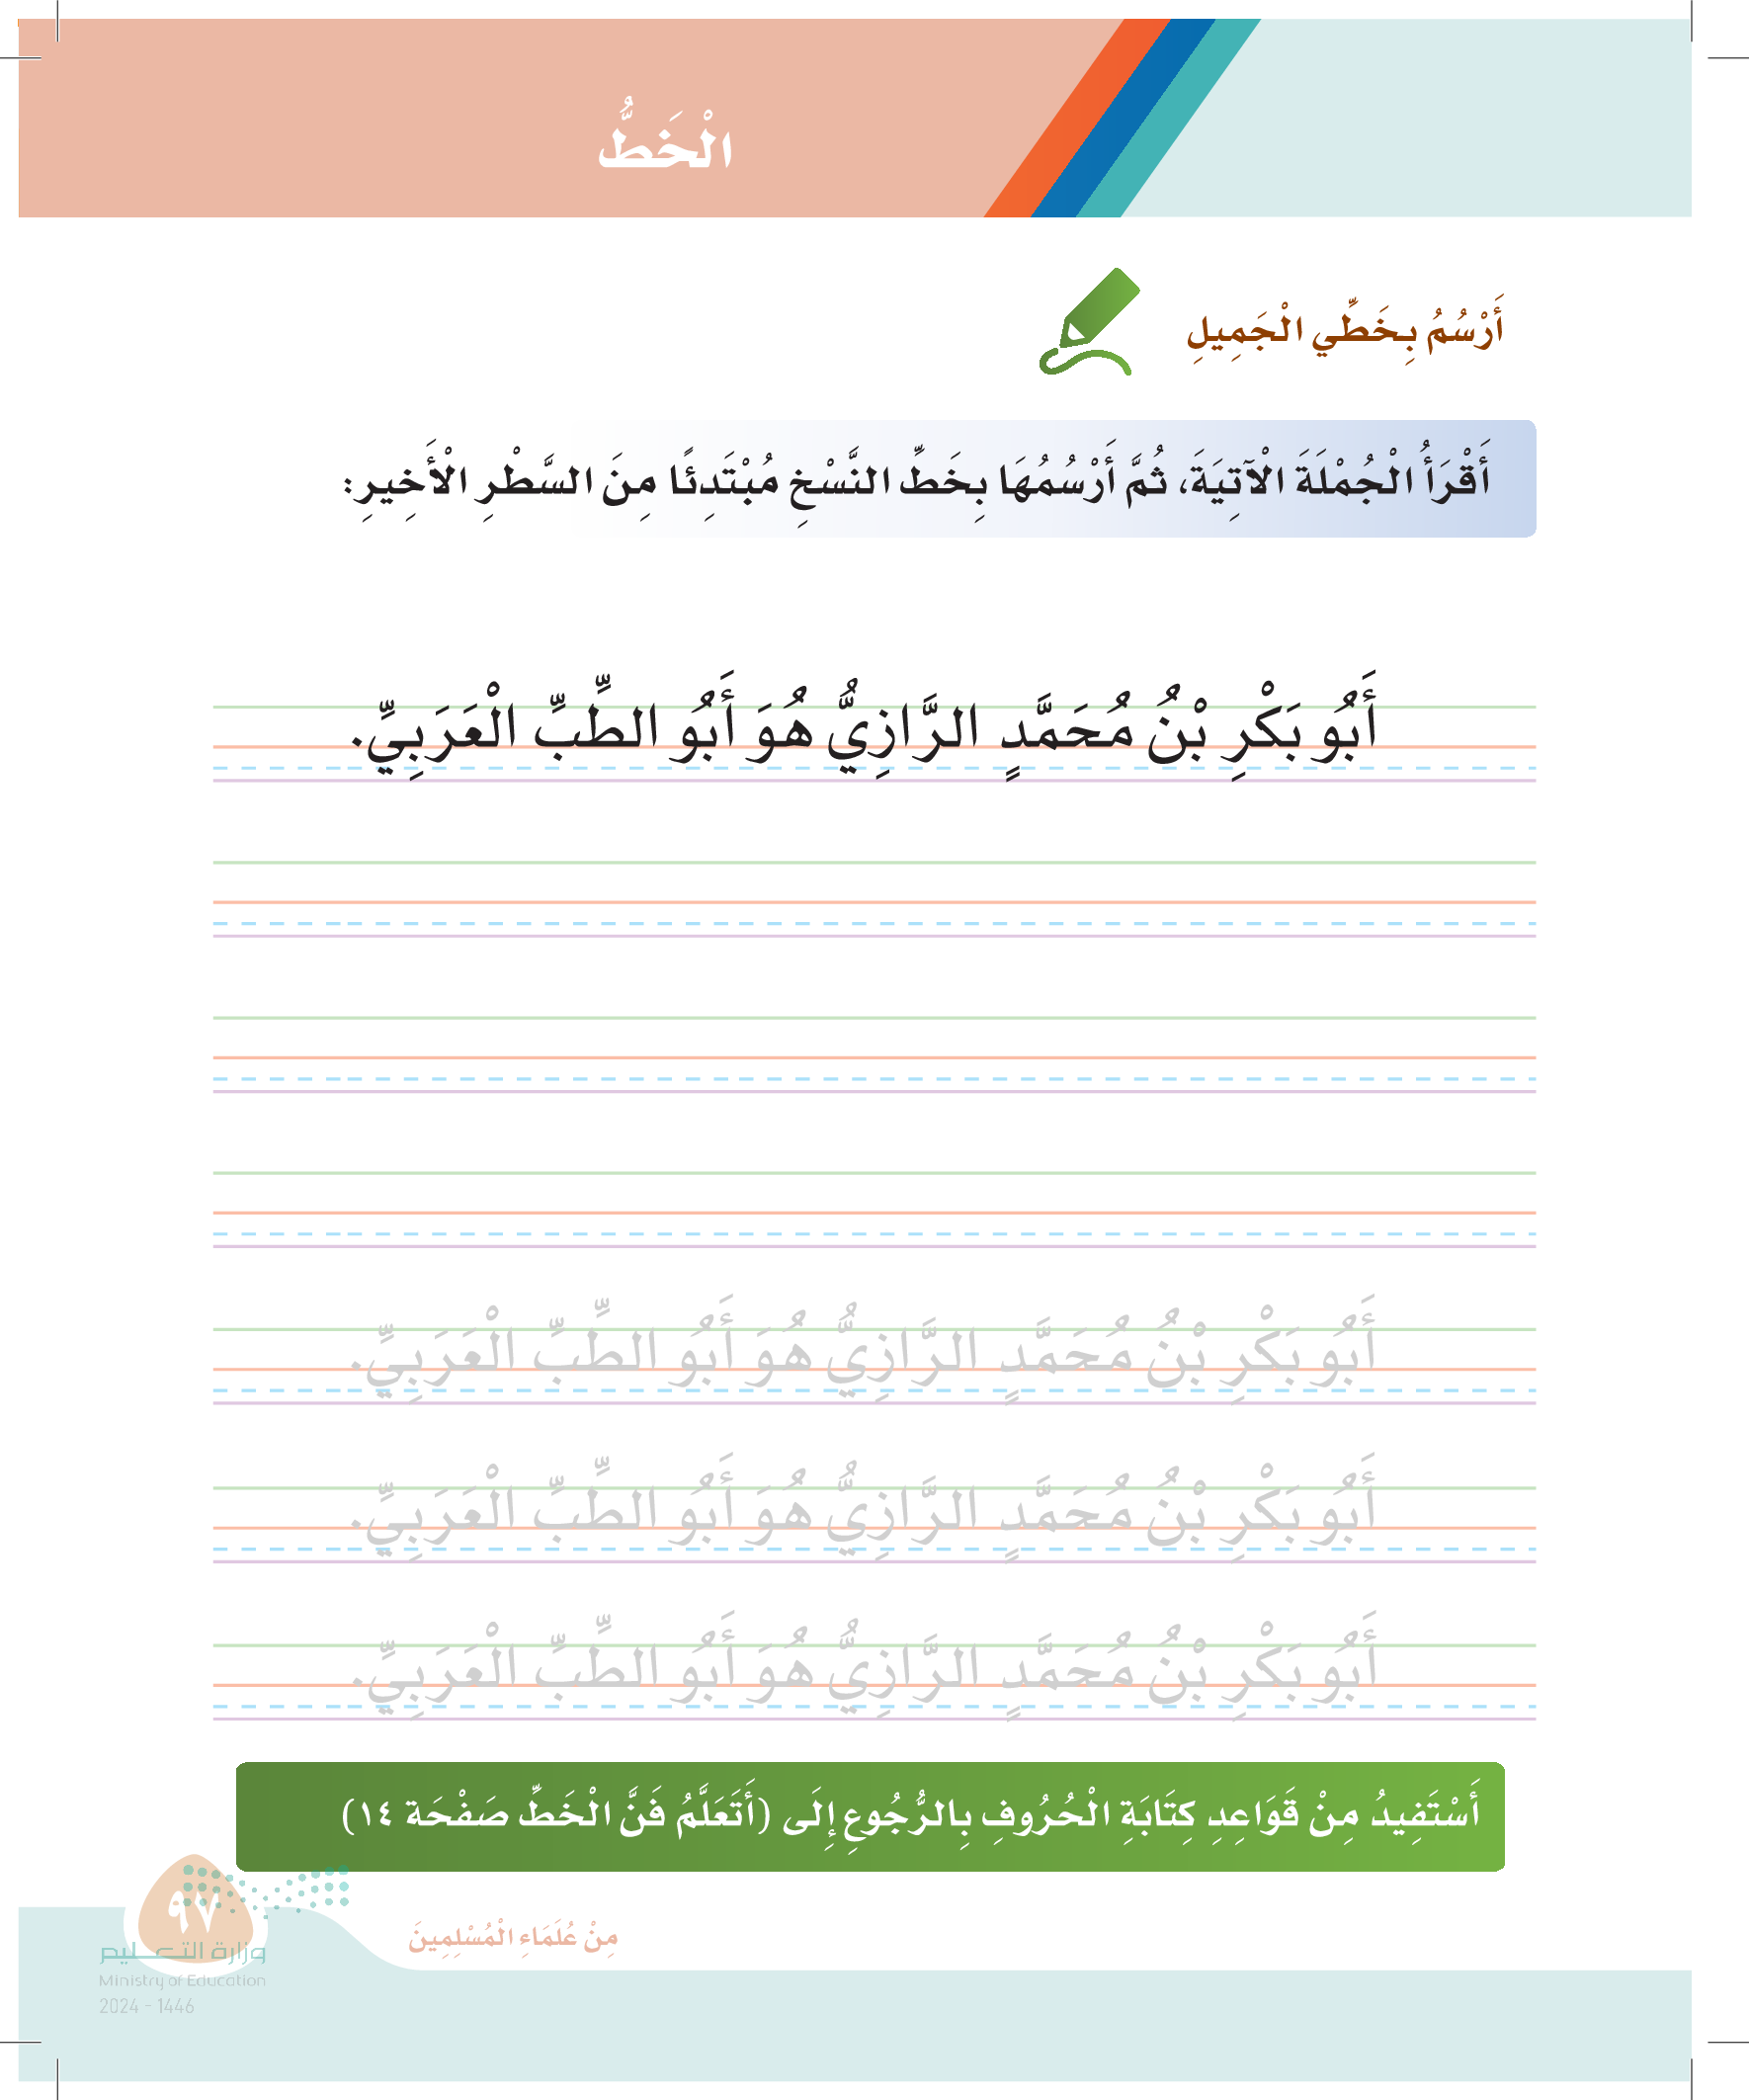 الْخَطُّ
أَرْسُمُ بِخَطِّي الْجَمِيلِ
أَقْرَأُ الْجُمْلَةَ الْآتِيَةَ، ثُمَّ أَرْسُمُهَا بِخَطِّ النَّسْخِ مُبْتَدِئًا مِنَ السَّطْرِ الْأَخِيرِ:
أَبُو بَكْرِ بْنُ مُحَمَّدٍ الرَّازِيُّ هُوَ أَبُو الطِّبِّ الْعَرَبِيِّ.
أَبُو بَكْرِ بْنُ مُحَمَّدٍ الرَّازِيُّ هُوَ أَبُو الطِّبِّ الْعَرَبِيِّ.
أَبُو بَكْرِ بْنُ مُحَمَّدٍ الرَّازِيُّ هُوَ أَبُو الطِّبِّ الْعَرَبِيِّ.
أَبُو بَكْرِ بْنُ مُحَمَّدٍ الرَّازِيُّ هُوَ أَبُو الطِّبِّ الْعَرَبِيِّ.
أَسْتَفِيدُ مِنْ قَوَاعِدِ كِتَابَةِ الْحُرُوفِ بِالرُّجُوعِ إِلَى (أَتَعَلَّمُ فَنَّ الْخَطِّ صَفْحَة ١٤)
مِنْ عُلَمَاءِ الْمُسْلِمِينَ
٩٧
وزارة التعليم
Ministry of Education
2024 - 1446